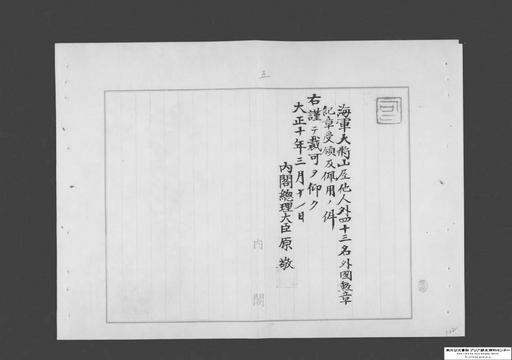 海軍大将山屋他人外四十三名外國勲章
記章受領及佩用ノ件
右謹テ裁可ヲ仰ク
大正十年三月十一日
内閣總理大臣原敬
内閣